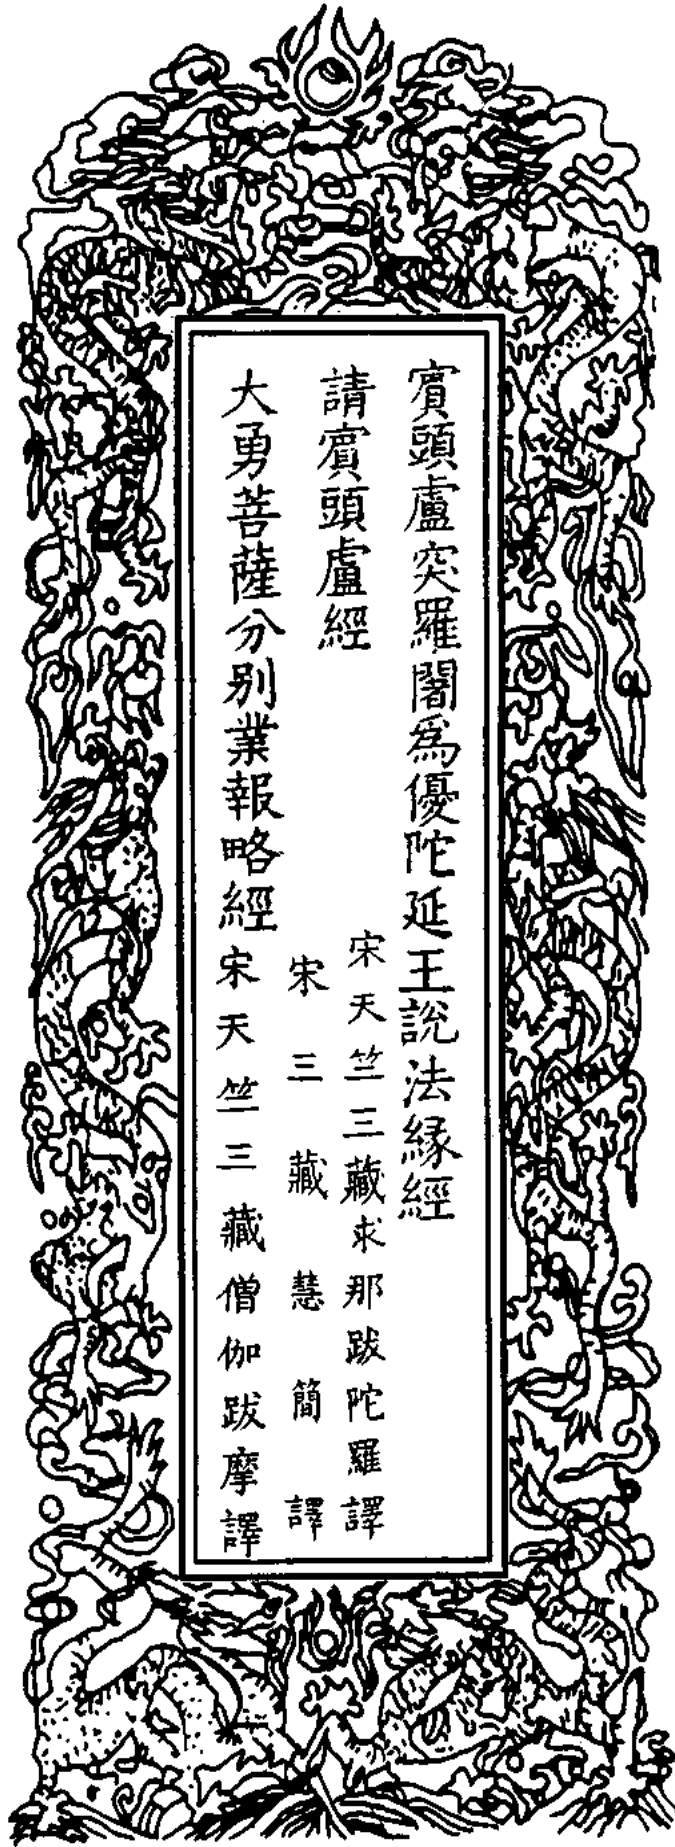 賓頭盧突羅闍為優陀延王說法緣經
宋天竺三藏求那跋陀羅譯
請賓頭盧經
宋三藏慧簡譯
大勇菩薩分別業報略經
宋天竺三藏僧伽跋摩譯